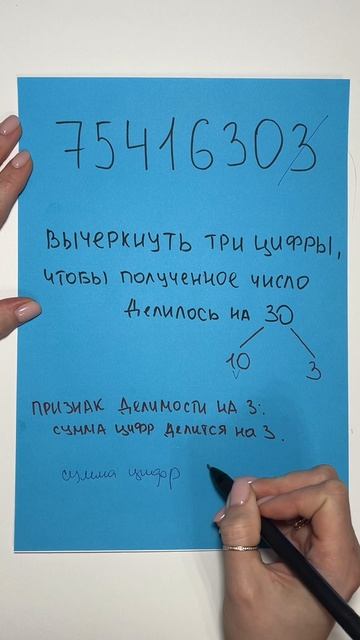 75416303
ВЫЧЕРКНУТЬ ТРИ ЦИФРЫ,
ЧТОБЫ ПОЛУЧЕННОЕ ЧИСЛО
ДЕЛИЛОСЬ НА 30
10 3
ПРИЗНАК ДЕЛИМОСТИ НА 3:
СУММА ЦИФР ДЕЛИТСЯ НА 3.
сумма цифр